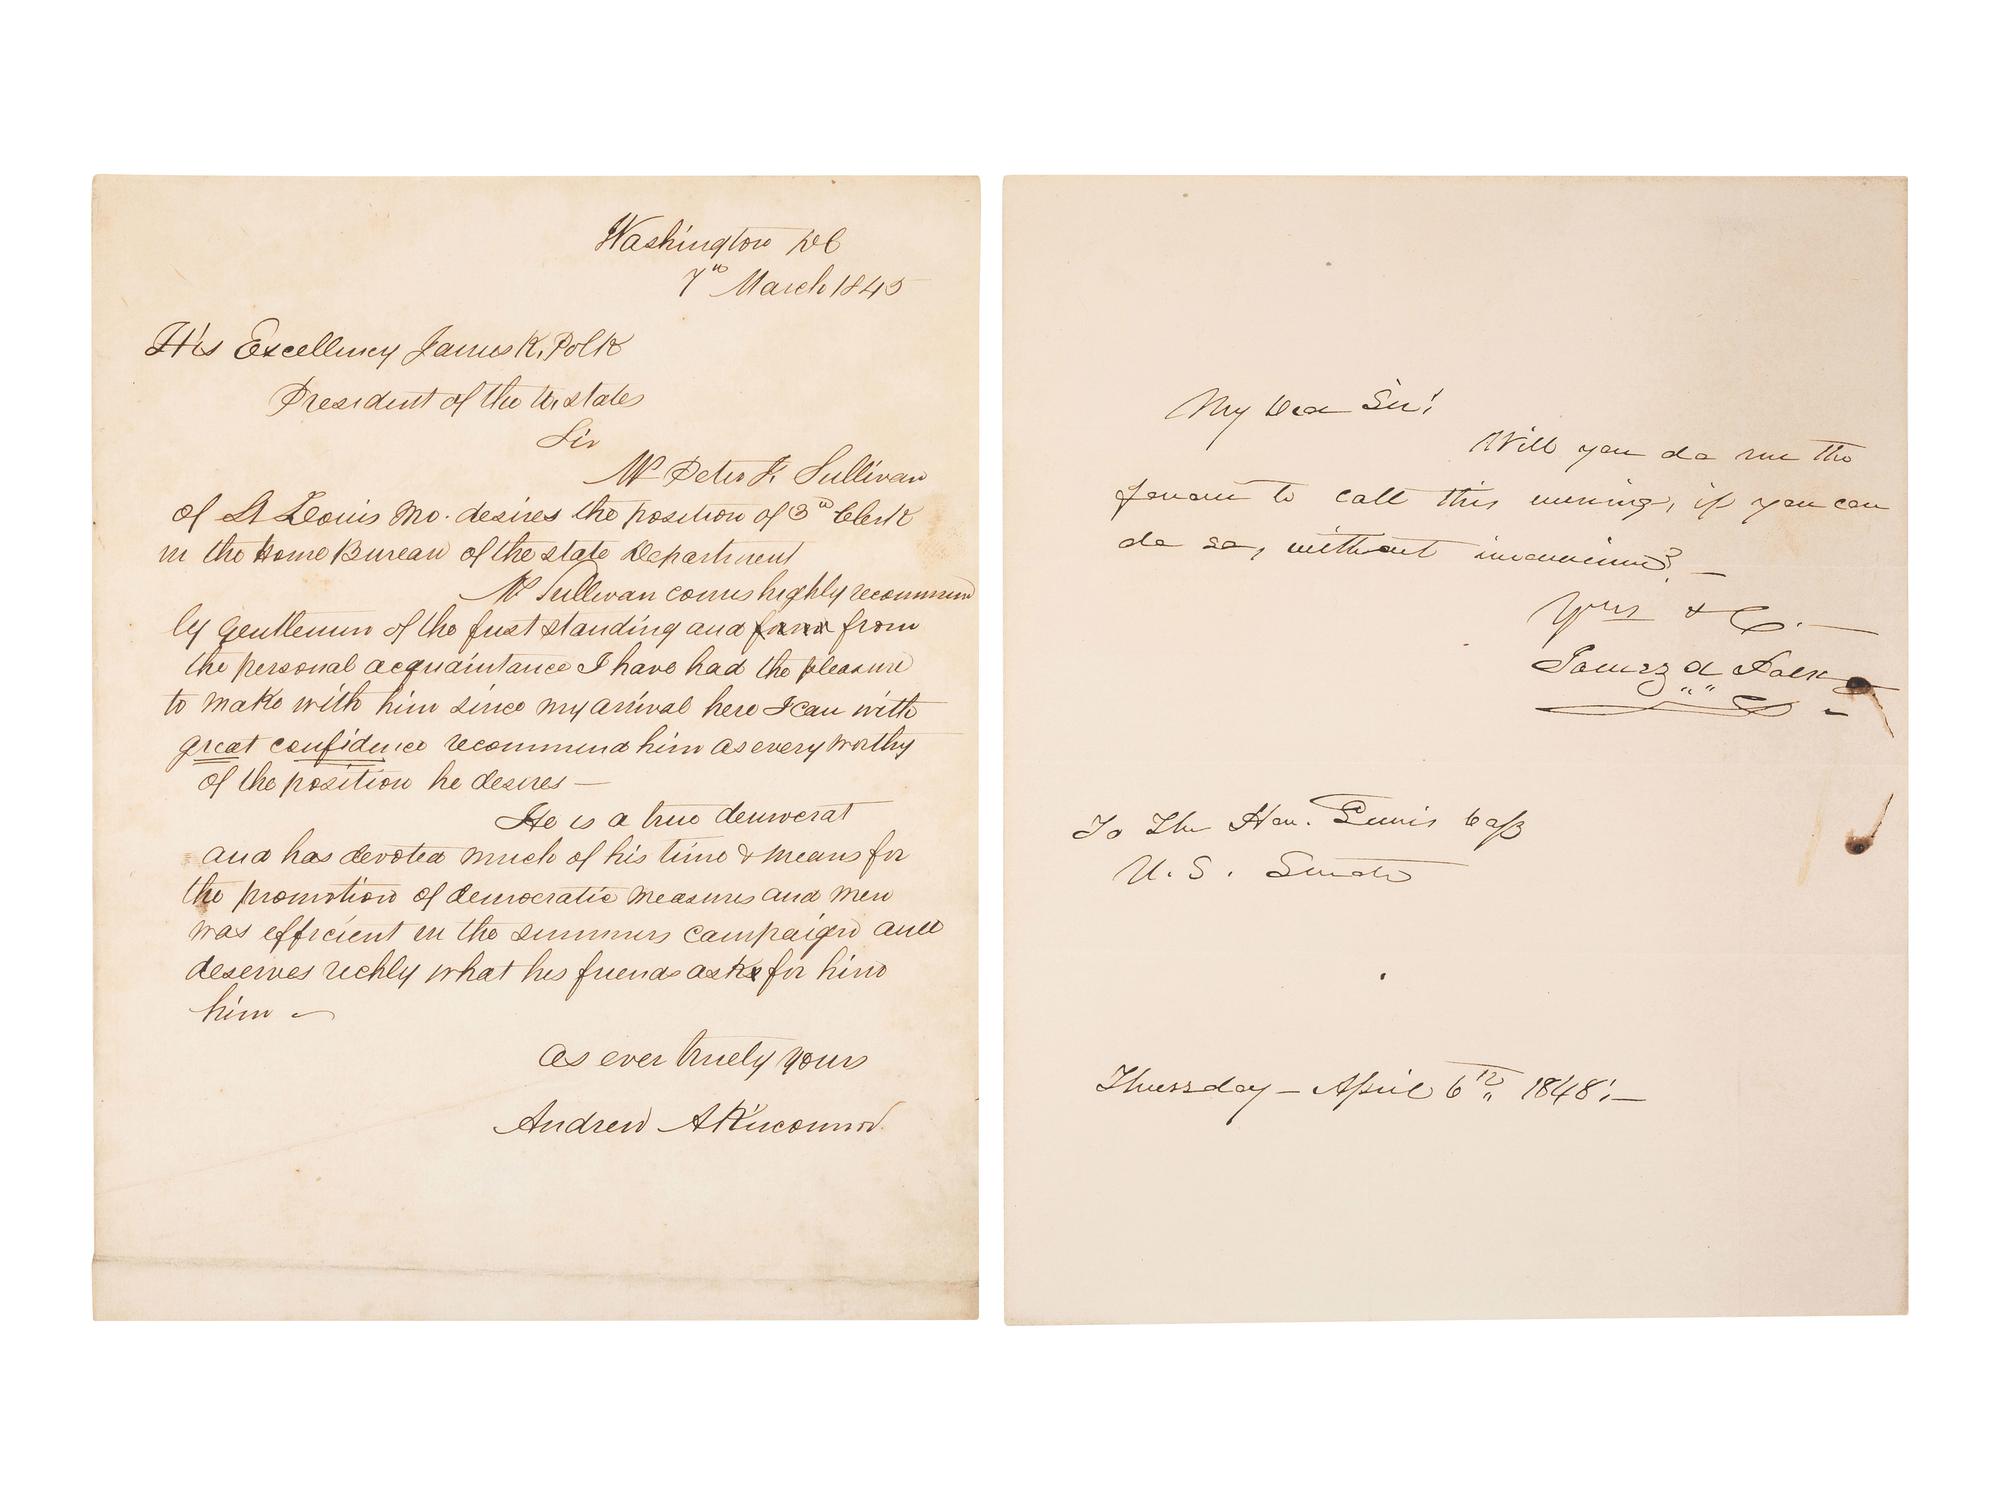 Washington DC
7th March 1845
His Excellency James K. Polk
President of the U. States
Sir
Mr Peter J. Sullivan
of St Louis Mo. desires the position of 3d Clerk
in the Home Bureau of the State Department
Mr Sullivan comes highly recommen
ly gentlemen of the first standing and from
the personal acquaintance I have had the pleasure
to make with him since my arrival here I can with
great confidence recommend him as every worthy
of the position he desires —
He is a true democrat
and has devoted much of his time & means for
the promotion of democratic measures and men
was efficient in the summers campaign and
deserves richly what his friends ask for him
him —
As ever truely yours
Andrew
My Dear Sir!
Will you do me the
favour to call this evening, if you can
do so, without inconvenience? —
Yrs & C. —
James K Polk
To The Hon. Lewis Cass
U. S. Senate
Thursday — April 6th 1848: —